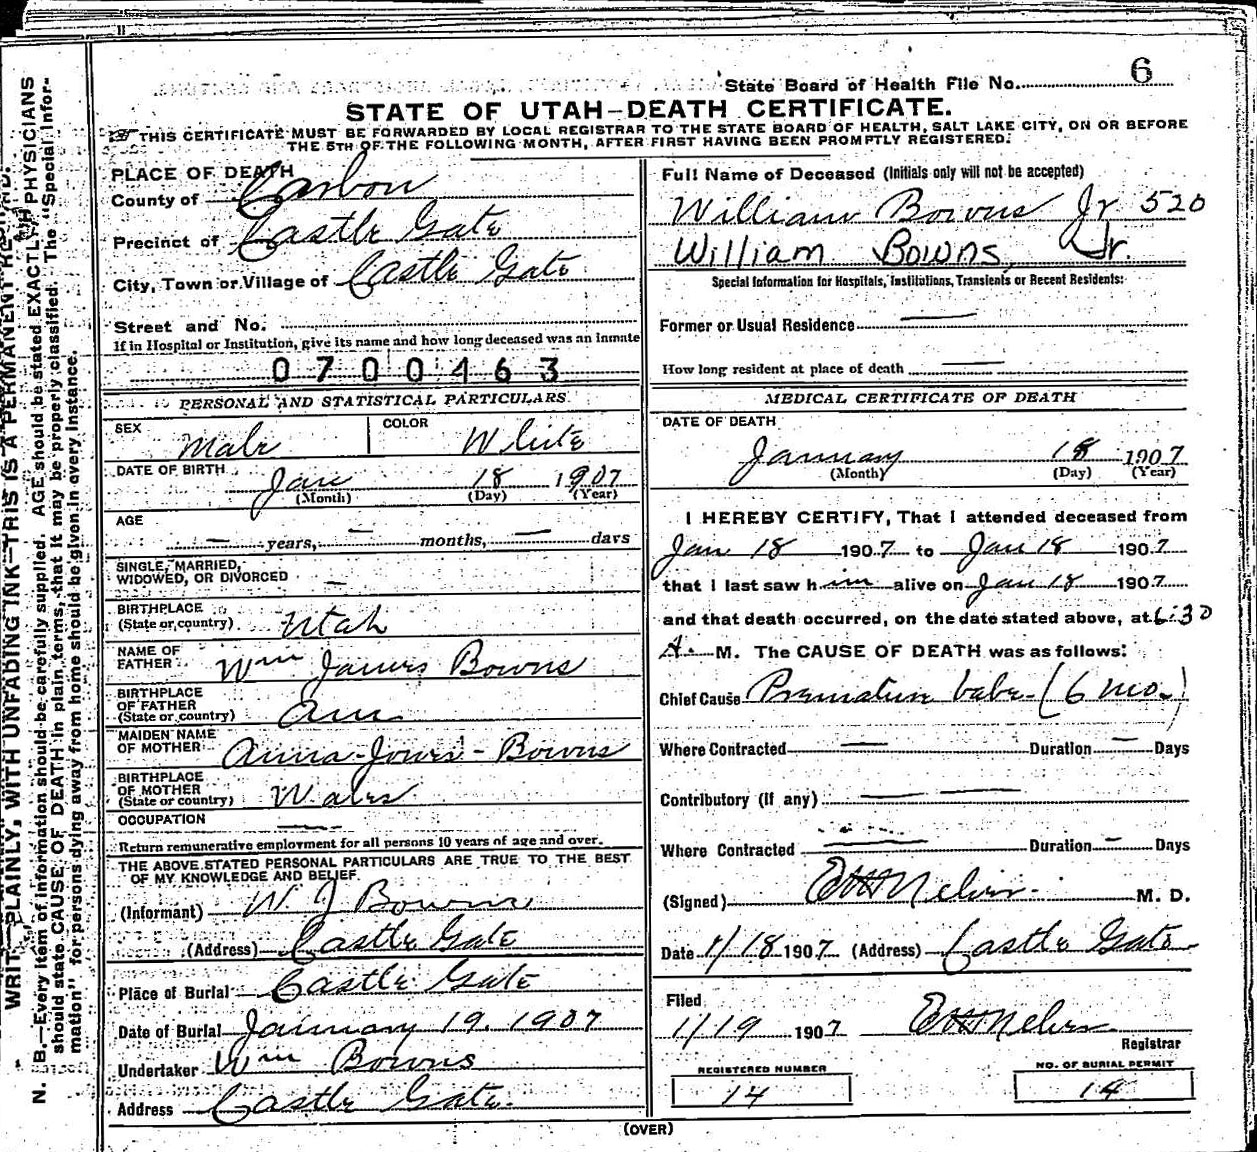 State Board of Health File No. 6
STATE OF UTAH—DEATH CERTIFICATE.
THIS CERTIFICATE MUST BE FORWARDED BY LOCAL REGISTRAR TO THE STATE BOARD OF HEALTH, SALT LAKE CITY, ON OR BEFORE
THE 5TH OF THE FOLLOWING MONTH, AFTER FIRST HAVING BEEN PROMPTLY REGISTERED.
PLACE OF DEATH
County of Carbon
Precinct of Castle Gate
City, Town or Village of Castle Gate
Street and No.
If in Hospital or Institution, give its name and how long deceased was an inmate
0700463
PERSONAL AND STATISTICAL PARTICULARS
SEX Male COLOR White
DATE OF BIRTH Jan 18 1907
(Month) (Day) (Year)
AGE
— years, — months, — days
SINGLE, MARRIED,
WIDOWED, OR DIVORCED —
BIRTHPLACE
(State or country) Utah
NAME OF
FATHER Wm James Bowns
BIRTHPLACE
OF FATHER
(State or country) Am
MAIDEN NAME
OF MOTHER Anna-Jones-Bowns
BIRTHPLACE
OF MOTHER
(State or country) Wales
OCCUPATION —
Return remunerative employment for all persons 10 years of age and over.
THE ABOVE STATED PERSONAL PARTICULARS ARE TRUE TO THE BEST
OF MY KNOWLEDGE AND BELIEF.
(Informant) W J Bowns
(Address) Castle Gate
Place of Burial Castle Gate
Date of Burial January 19, 1907
Undertaker Wm Bowns
Address Castle Gate.
Full Name of Deceased (Initials only will not be accepted)
William Bowns Jr 520
William Bowns, Jr.
Special Information for Hospitals, Institutions, Transients or Recent Residents:
Former or Usual Residence —
How long resident at place of death —
MEDICAL CERTIFICATE OF DEATH
DATE OF DEATH
January 18 1907
(Month) (Day) (Year)
I HEREBY CERTIFY, That I attended deceased from
Jan 18 1907 to Jan 18 1907
that I last saw him alive on Jan 18 1907
and that death occurred, on the date stated above, at 6:30
A. M. The CAUSE OF DEATH was as follows:
Chief Cause Premature babe - (6 mo.)
Where Contracted — Duration — Days
Contributory (If any) — —
Where Contracted — Duration — Days
(Signed) M. D.
Date 1/18 1907 (Address) Castle Gate
Filed
1/19 1907
Registrar
REGISTERED NUMBER
14
NO. OF BURIAL PERMIT
14
(OVER)
WRITE PLAINLY, WITH UNFADING INK—THIS IS A PERMANENT RECORD.
N. B.—Every item of information should be carefully supplied. AGE should be stated EXACTLY. PHYSICIANS
should state CAUSE OF DEATH in plain terms, that it may be properly classified. The "Special Infor-
mation" for persons dying away from home should be given in every instance.